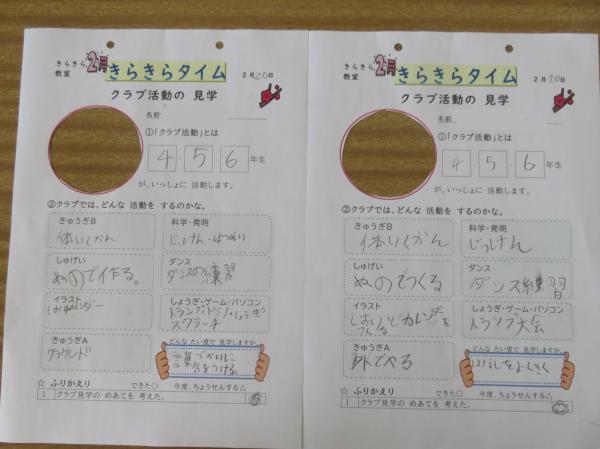 きらきら
教室
2月
きらきらタイム
2月20日
クラブ活動の 見学
名前
①「クラブ活動」とは
4・5・6年生
が、いっしょに 活動します。
②クラブでは、どんな 活動を するのかな。
きゅうぎB
体いくかん
科学・発明
じっけん・はつめい
しゅげい
ぬので作る。
ダンス
ダンスの練習
イラスト
しおりカレンダー
しょうぎ・ゲーム・パソコン
トランプ
スクラッチ
きゅうぎA
グラウンド
どんな たい度で 見学しますか
言葉づかいに
気をつける
☆ ふりかえり
できた○ 今度、ちょうせんする△
1 クラブ見学の めあてを 考えた。
きらきら
教室
2月
きらきらタイム
2月20日
クラブ活動の 見学
名前
①「クラブ活動」とは
4・5・6年生
が、いっしょに 活動します。
②クラブでは、どんな 活動を するのかな。
きゅうぎB
体いくかん
科学・発明
じっけん
しゅげい
ぬのでつくる
ダンス
ダンス練習
イラスト
しおり カレンダー
つくる
しょうぎ・ゲーム・パソコン
トランプ大会
きゅうぎA
外でやる
どんな たい度で 見学しますか
はなしをよくきく
☆ ふりかえり
できた○ 今度、ちょうせんする△
1 クラブ見学の めあてを 考えた。